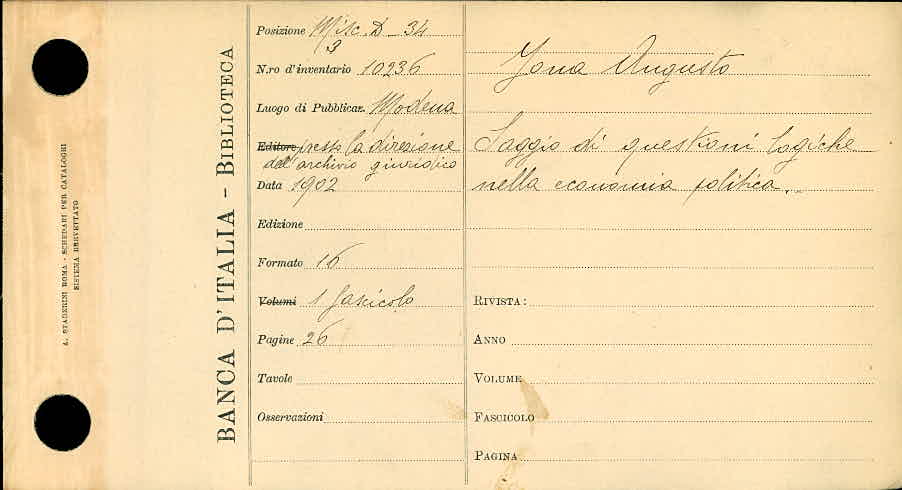 A. STADERINI ROMA - SCHEDARI PER CATALOGHI
SISTEMA BREVETTATO
BANCA D'ITALIA - BIBLIOTECA
Posizione Misc. D - 34
3
N.ro d'inventario 10236
Luogo di Pubblicaz. Modena
Editore presso la direzione
dell'archivio giuridico
Data 1902
Edizione
Formato 16
Volumi 1 fascicolo
Pagine 26
Tavole
Osservazioni
Jona Augusto
Saggio di questioni logiche
nella economia politica.
RIVISTA:
ANNO
VOLUME
FASCICOLO
PAGINA